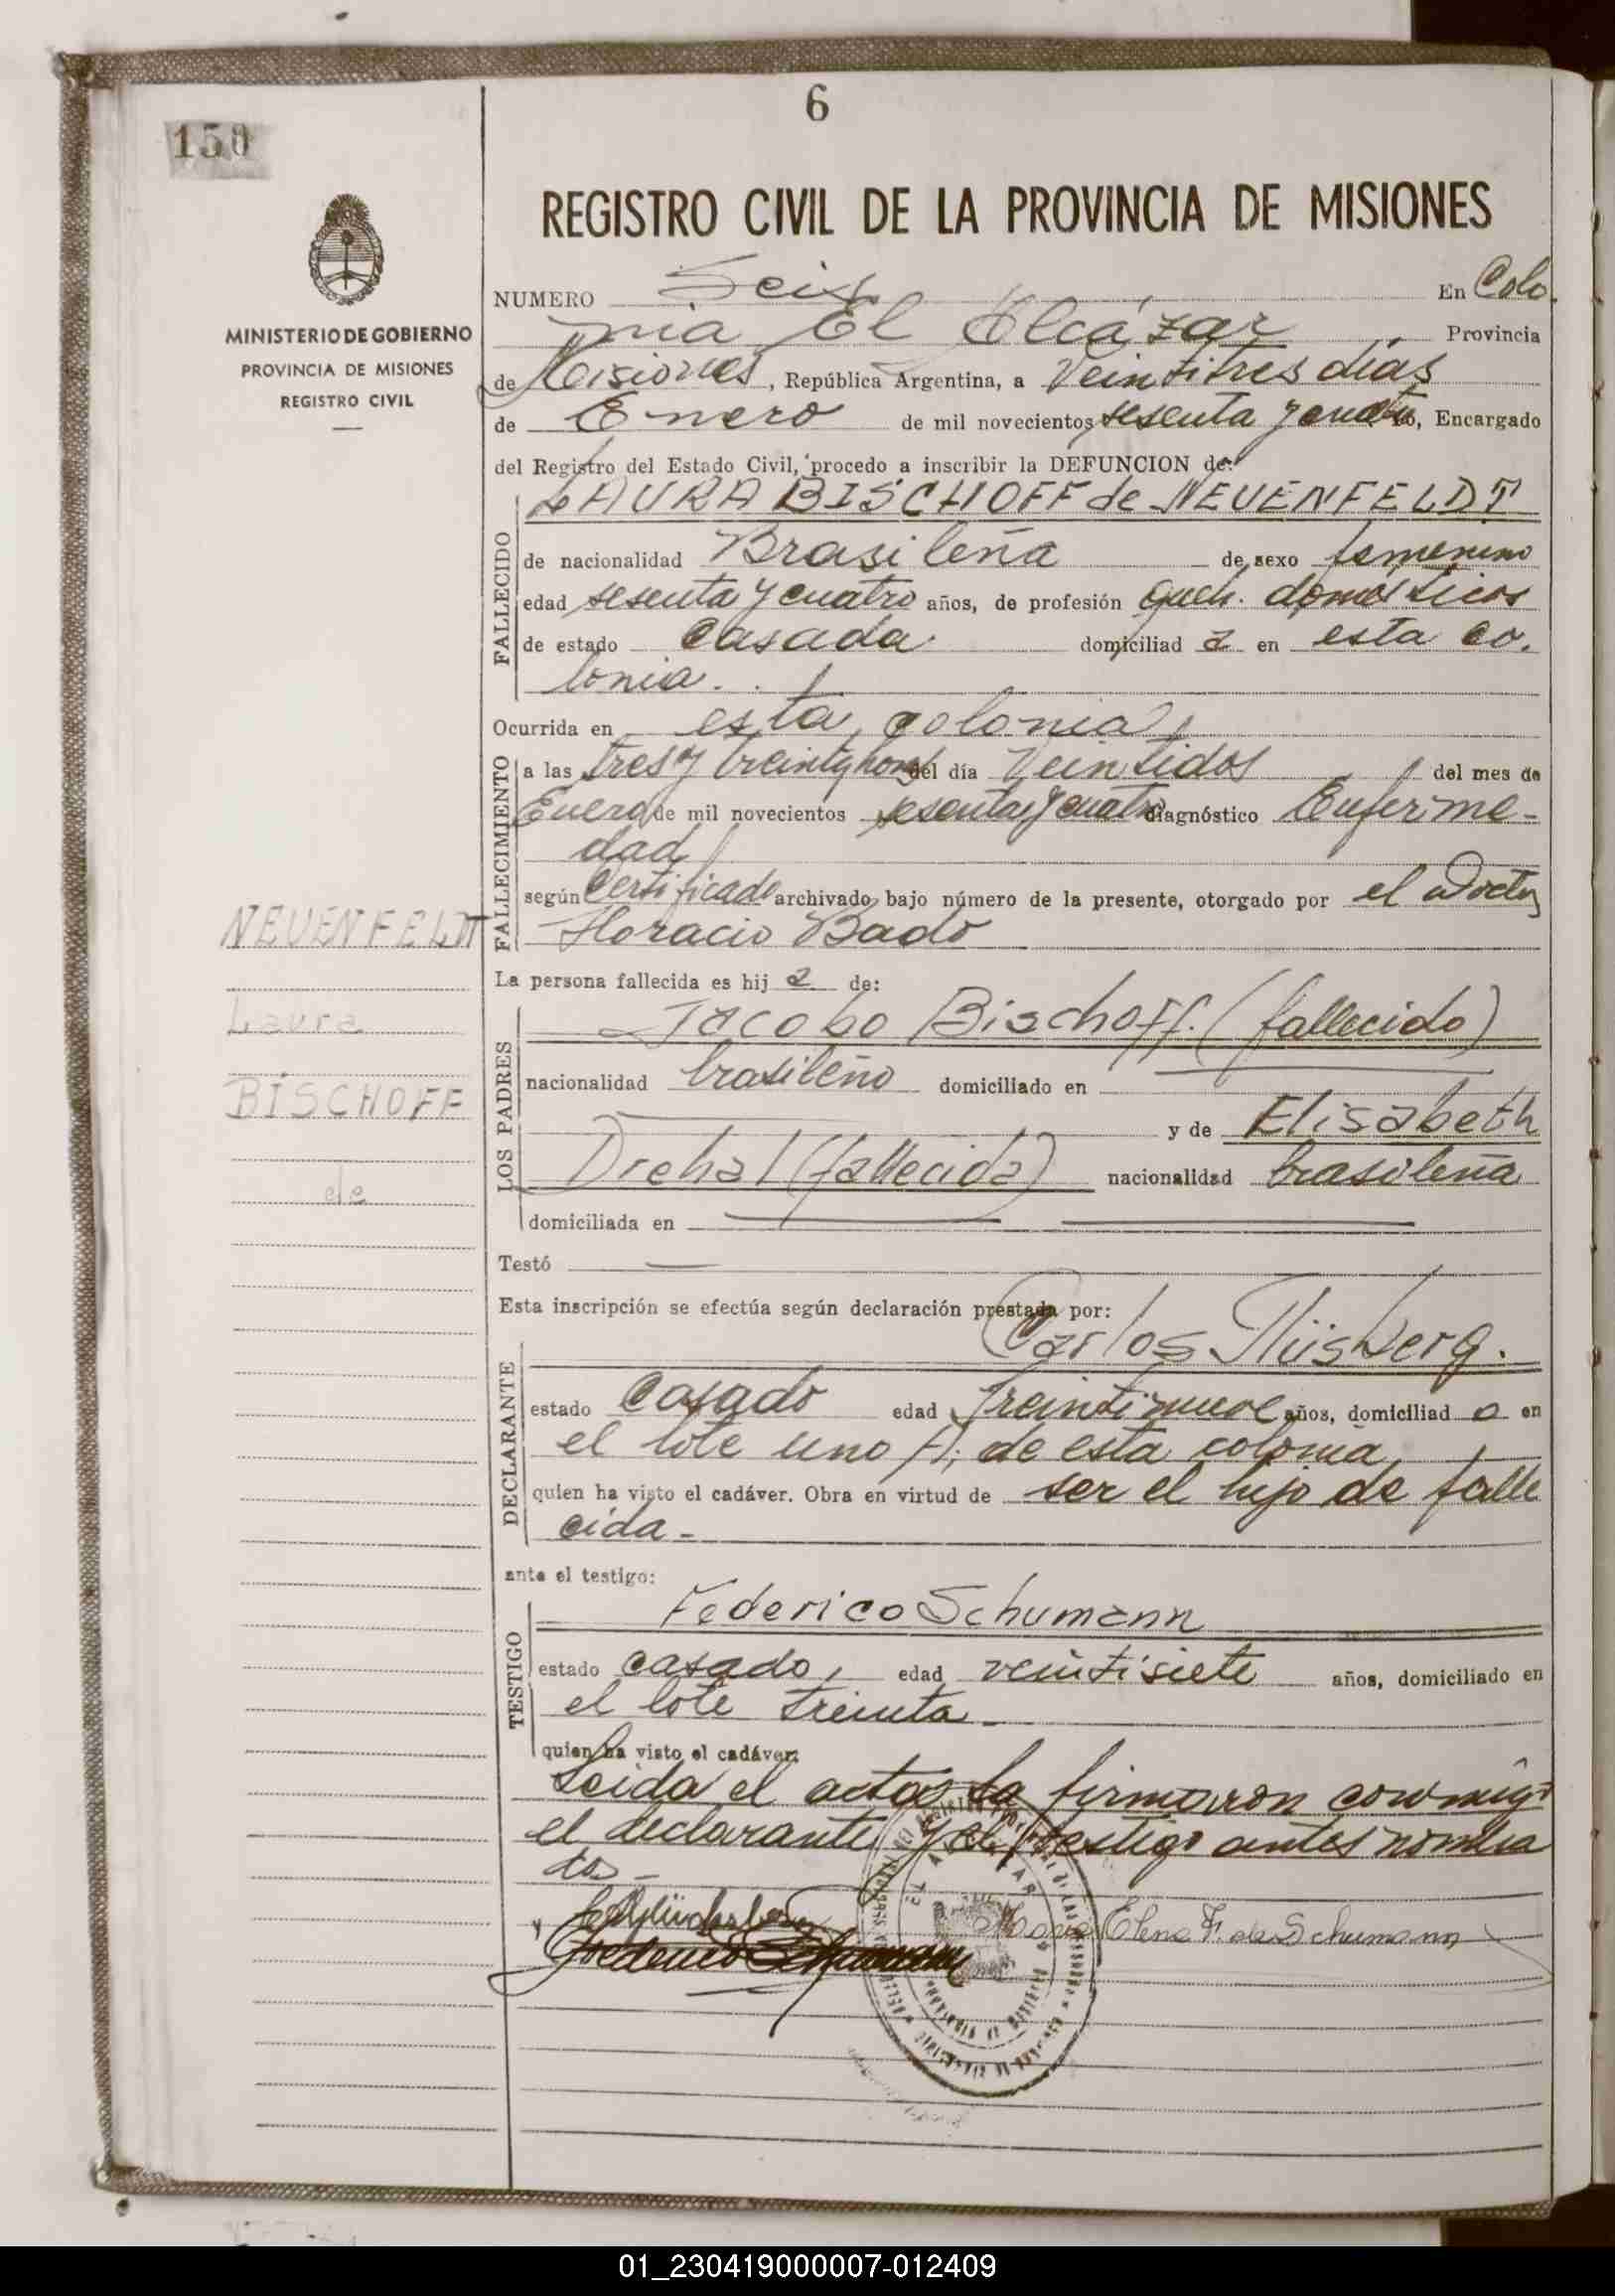 6
150
REGISTRO CIVIL DE LA PROVINCIA DE MISIONES
MINISTERIO DE GOBIERNO
PROVINCIA DE MISIONES
REGISTRO CIVIL
NUMERO Seis En Colo
nia El Alcázar Provincia
de Misiones, República Argentina, a Veintitres días
de Enero de mil novecientos sesenta y cuatro, Encargado
del Registro del Estado Civil, procedo a inscribir la DEFUNCION de:
LAURA BISCHOFF de NEUENFELDT
FALLECIDO
de nacionalidad Brasileña de sexo femenino
edad sesenta y cuatro años, de profesión queh. domésticos
de estado casada domiciliad a en esta co.
lonia.
Ocurrida en esta colonia
FALLECIMIENTO
a las tres y treinta horas del día Veintidos del mes de
Enero de mil novecientos sesenta y cuatro diagnóstico Enferme-
dad
según Certificado archivado bajo número de la presente, otorgado por el Doctor
Horacio Bado
NEUENFELDT
Laura
BISCHOFF
de
La persona fallecida es hij a de:
LOS PADRES
Jacobo Bischoff. (fallecido)
nacionalidad brasileño domiciliado en
y de Elisabeth
Drehal (fallecida) nacionalidad brasileña
domiciliada en
Testó
Esta inscripción se efectúa según declaración prestada por:
Carlos
DECLARANTE
estado Casado edad Treintinueve años, domiciliad o en
el lote uno de esta colonia
quien ha visto el cadáver. Obra en virtud de ser el hijo de falle
cida.-
ante el testigo:
Federico Schumann
TESTIGO
estado casado, edad veintisiete años, domiciliado en
el lote treinta-
quien ha visto el cadáver:
Leida el acta la firmaron conmigo
el declarante y el testigo antes nombra
dos-
Federico Schumann
Maria Elena F. de Schumann
EL ALCAZAR
PROVINCIA DE MISIONES
01_230419000007-012409